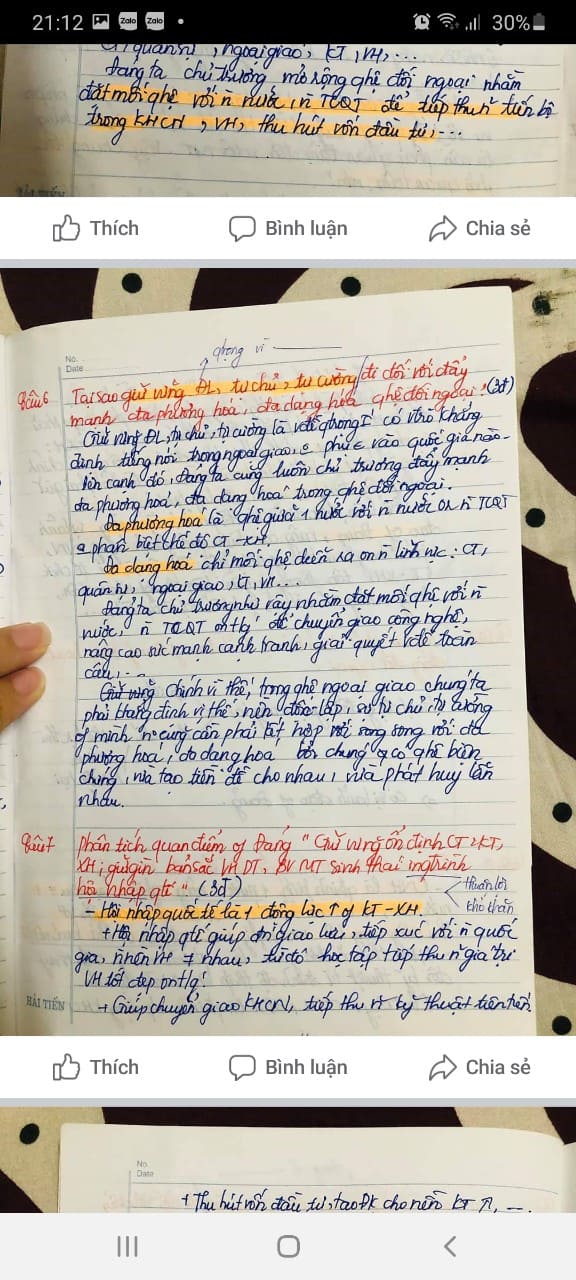 21:12 Zalo Zalo 30%
, ngoại giao, KT, VH, ...
Đảng ta chủ trương mở rộng ghệ đối ngoại nhằm
đặt mối ghệ với n̄ nước, n̄ TCQT để tiếp thu n̄ tiến bộ
trong KHCN, VH, thu hút vốn đầu tư, ...
HẢI TIẾN
Thích Bình luận Chia sẻ
No.
Date
qtrọng vì
Câu 6 Tại sao giữ vững ĐL, tự chủ, tự cường / đi đôi với đẩy
mạnh đa phương hoá, đa dạng hoá ghệ đối ngoại? (3đ)
Giữ vững ĐL, tự chủ, tự cường là vđề qtrọng có vtrò khẳng
định tiếng nói trong ngoại giao, phụ ∈ vào quốc gia nào.
Bên cạnh đó, Đảng ta cũng luôn chủ trương đẩy mạnh
đa phương hoá, đa dạng hoá trong ghệ đối ngoại.
Đa phương hoá là ghệ giữa 1 nước với n̄ nước or n̄ TCQT
phân biệt chế độ CT - XH.
Đa dạng hoá chỉ mối ghệ diễn ra on n̄ lĩnh vực: CT,
quân sự, ngoại giao, KT, VH...
Đảng ta chủ trương như vậy nhằm đặt mối ghệ với n̄
nước, n̄ TCQT ontg để chuyển giao công nghệ,
nâng cao sức mạnh cạnh tranh, giải quyết vđề toàn
cầu, ...
Chính vì thế, trong ghệ ngoại giao chúng ta
phải khẳng định vị thế, nền độc lập, sự tự chủ, tự cường
of mình n̄ cũng cần phải kết hợp với song song với đa
phương hoá, đa dạng hoá bởi chúng có ghệ biện
chứng, vừa tạo tiền đề cho nhau, vừa phát huy lẫn
nhau.
Câu 7 Phân tích quan điểm of Đảng "Giữ vững ổn định CT, KT,
XH; giữ gìn bản sắc VH DT, BV MT sinh thái trong qtrình
hội nhập qtế" (3đ)
thuận lợi
khó khăn
- Hội nhập quốc tế là 1 động lực ↑ of KT - XH.
+ Hội nhập qtế giúp giao lưu, tiếp xúc với n̄ quốc
gia, n̄ nền VH ≠ nhau, từ đó học tập tiếp thu n̄ giá trị
VH tốt đẹp ontg.
HẢI TIẾN + Giúp chuyển giao KHCN, tiếp thu n̄ kỹ thuật tiên tiến.
Thích Bình luận Chia sẻ
No.
Date
+ Thu hút vốn đầu tư, tạo ĐK cho nền KT ↑, ...